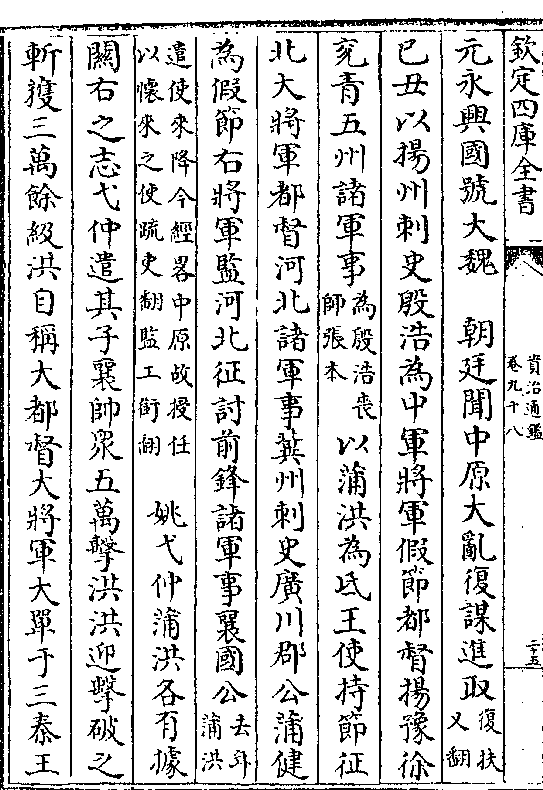 欽定四庫全書
資治通鑑
卷九十八
二十五
元永興國號大魏　朝廷聞中原大亂復謀進取復扶
又翻
己丑以揚州刺史殷浩為中軍將軍假節都督揚豫徐
兗青五州諸軍事為殷浩喪
師張本　以蒲洪為氐王使持節征
北大將軍都督河北諸軍事冀州刺史廣川郡公蒲健
為假節右將軍監河北征討前鋒諸軍事襄國公去年
蒲洪
遣使來降今經畧中原故授任
以懷來之使疏吏翻監工銜翻　姚弋仲蒲洪各有據
關右之志弋仲遣其子襄帥眾五萬擊洪洪迎擊破之
斬獲三萬餘級洪自稱大都督大將軍大單于三秦王